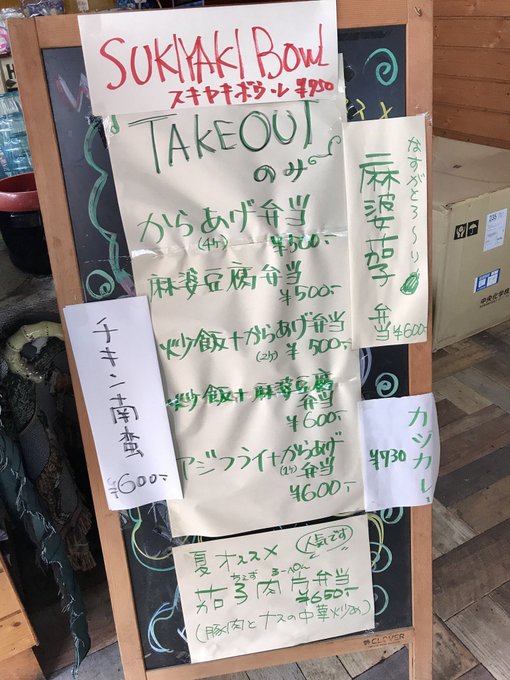 SUKIYAKI BOWL
スキヤキボウル ¥750
TAKEOUT
のみ
からあげ弁当
(4ケ) ¥500-
麻婆豆腐弁当
¥500-
炒飯+からあげ弁当
(2ケ) ¥500-
炒飯+麻婆豆腐
弁当
¥600-
アジフライ+からあげ
(1ケ) 弁当
¥600-
なすがとろ〜り
麻婆茄子
弁当 ¥600-
チキン南蛮
¥600-
カツカレー
¥730
夏オススメ
人気です
茄子肉片弁当
ちぇず ろーぺん
¥650-
(豚肉とナスの中華炒め)
CLOVER
中央化学